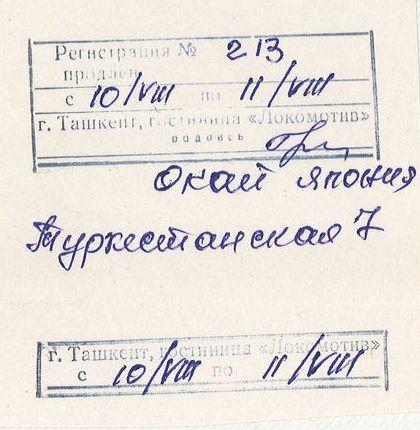 Регистрация № 213
продлен
с 10/VIII по 11/VIII
г. Ташкент, гостиница «Локомотив»
подпись
Окай япония
Туркестанская 7
г. Ташкент, гостиница «Локомотив»
с 10/VIII по 11/VIII